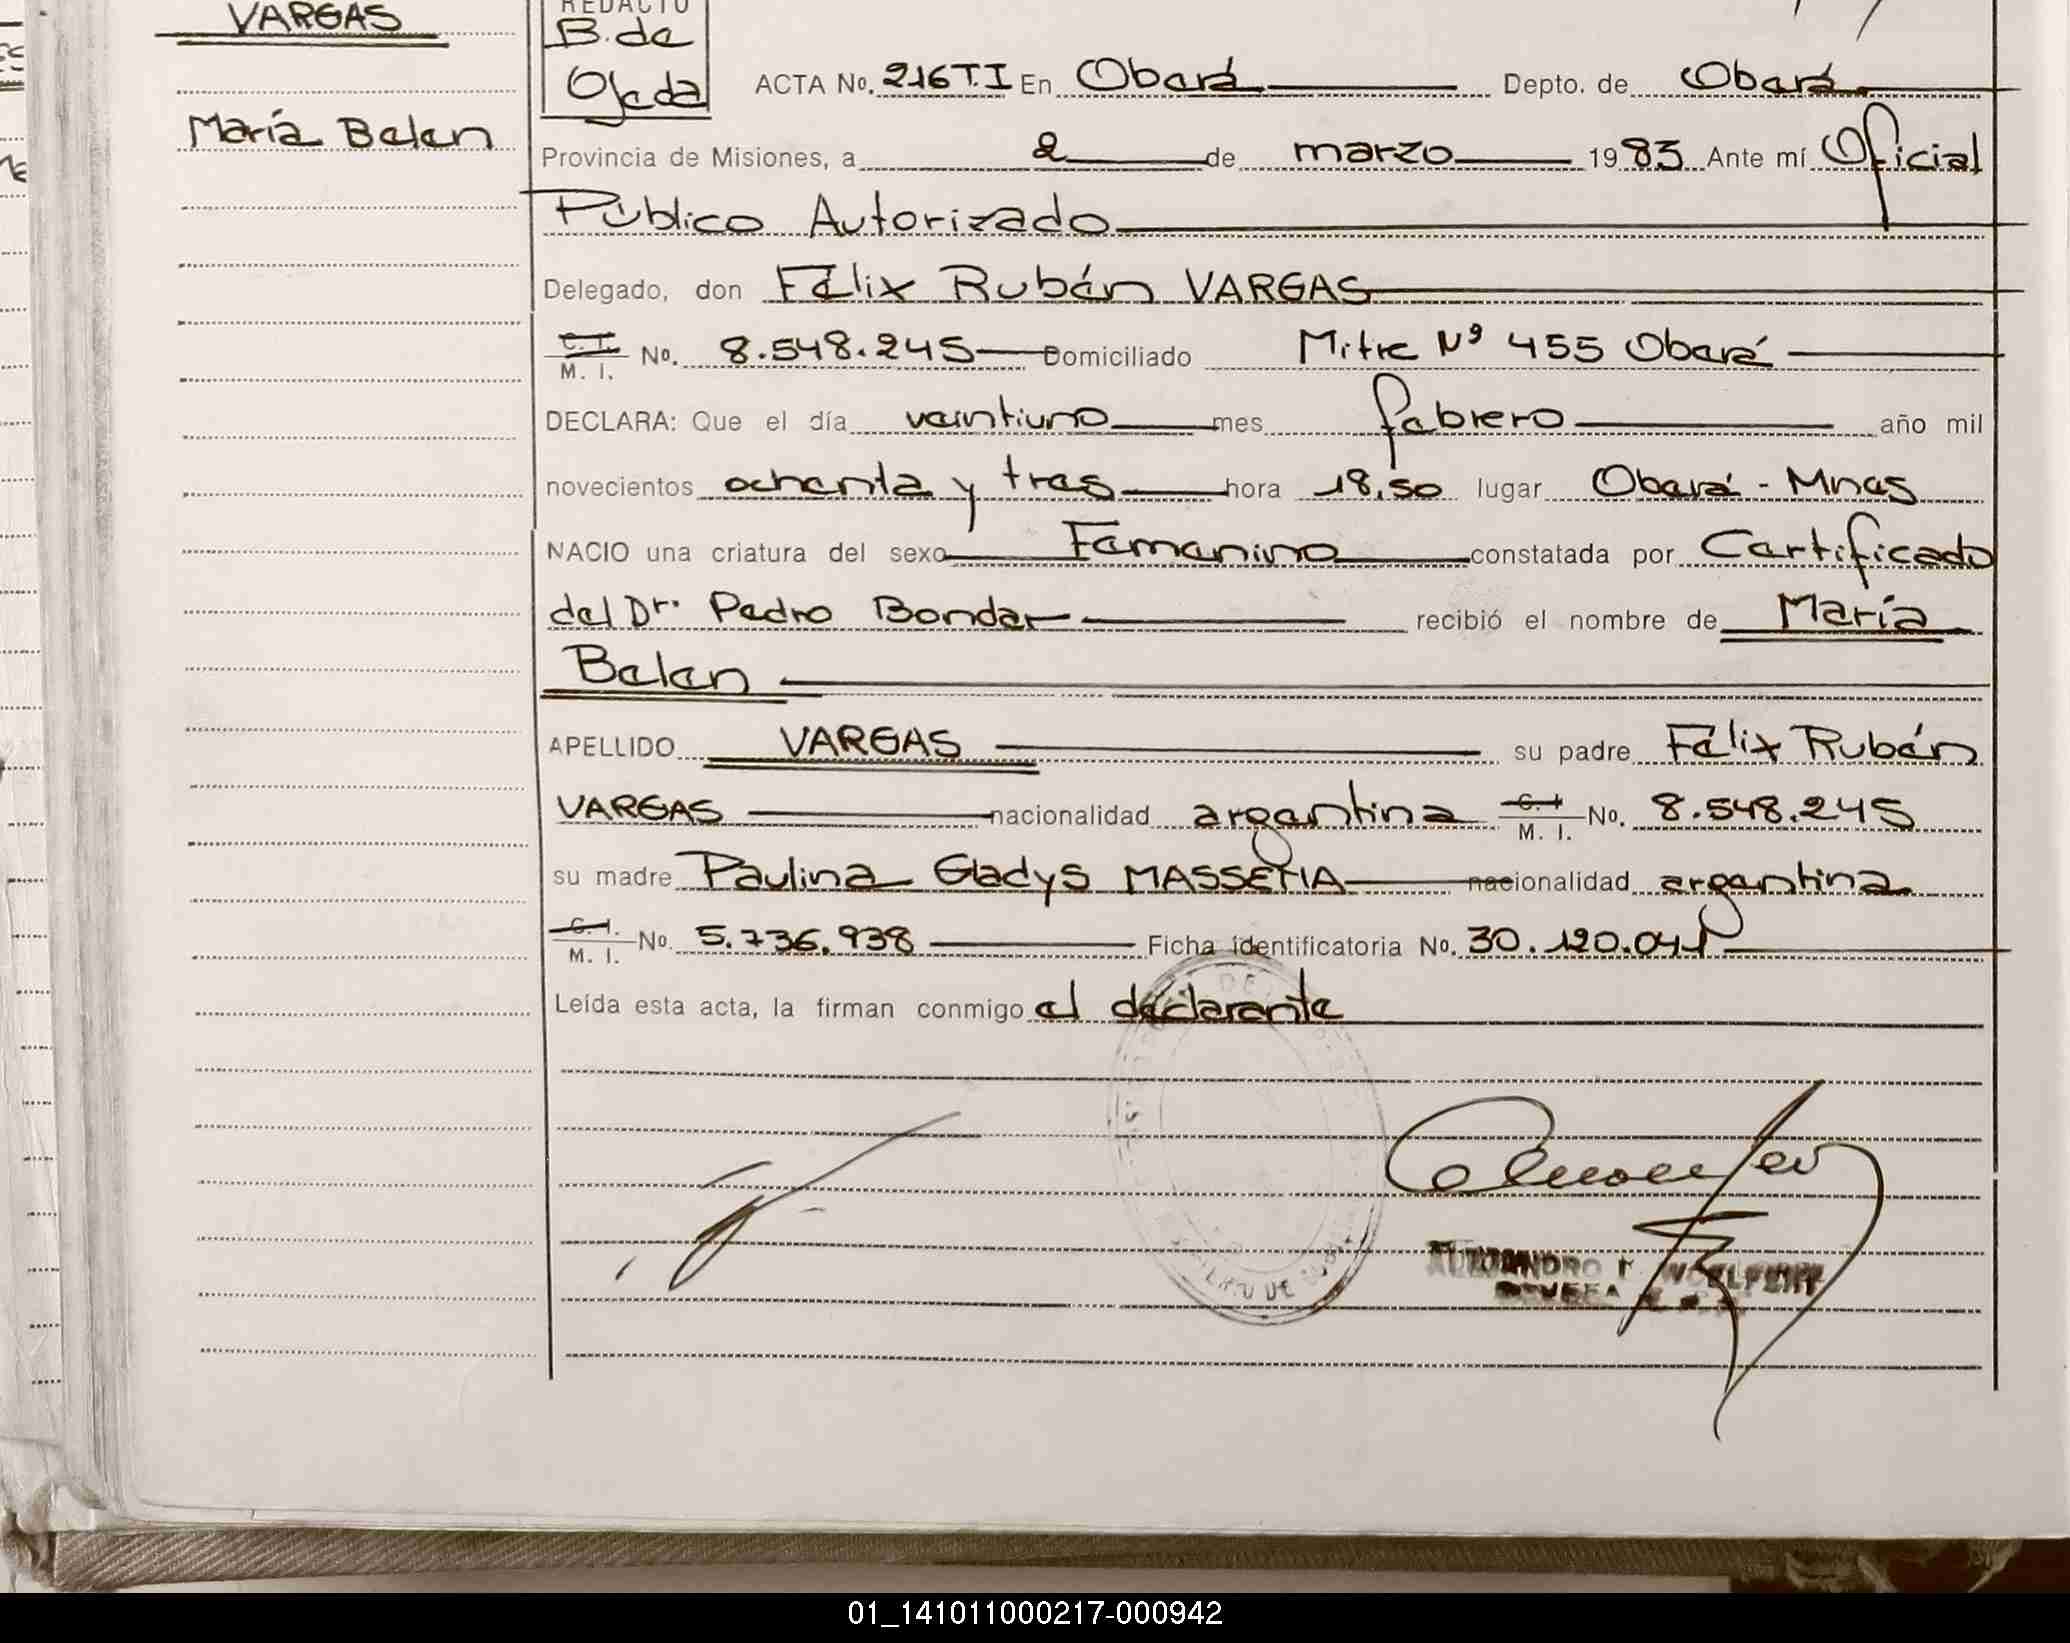 VARGAS
María Belen
REDACTO
B. de
Ojeda
ACTA No. 216 T.I En Oberá Depto. de Oberá
Provincia de Misiones, a 2 de marzo 1983 Ante mí Oficial
Público Autorizado
Delegado, don Félix Rubén VARGAS
C. I.
M. I. No. 8.548.245 Domiciliado Mitre Nº 455 Oberá
DECLARA: Que el día veintiuno mes febrero año mil
novecientos ochenta y tres hora 18,50 lugar Oberá - Mnes
NACIO una criatura del sexo Femenino constatada por Certificado
del Dr. Pedro Bondar recibió el nombre de María
Belen
APELLIDO VARGAS su padre Félix Rubén
VARGAS nacionalidad argentina C. I.
M. I. No. 8.548.245
su madre Paulina Gladys nacionalidad argentina
C. I.
M. I. No. 5.736.938 Ficha identificatoria No. 30.120.041
Leída esta acta, la firman conmigo el declarante
01_141011000217-000942